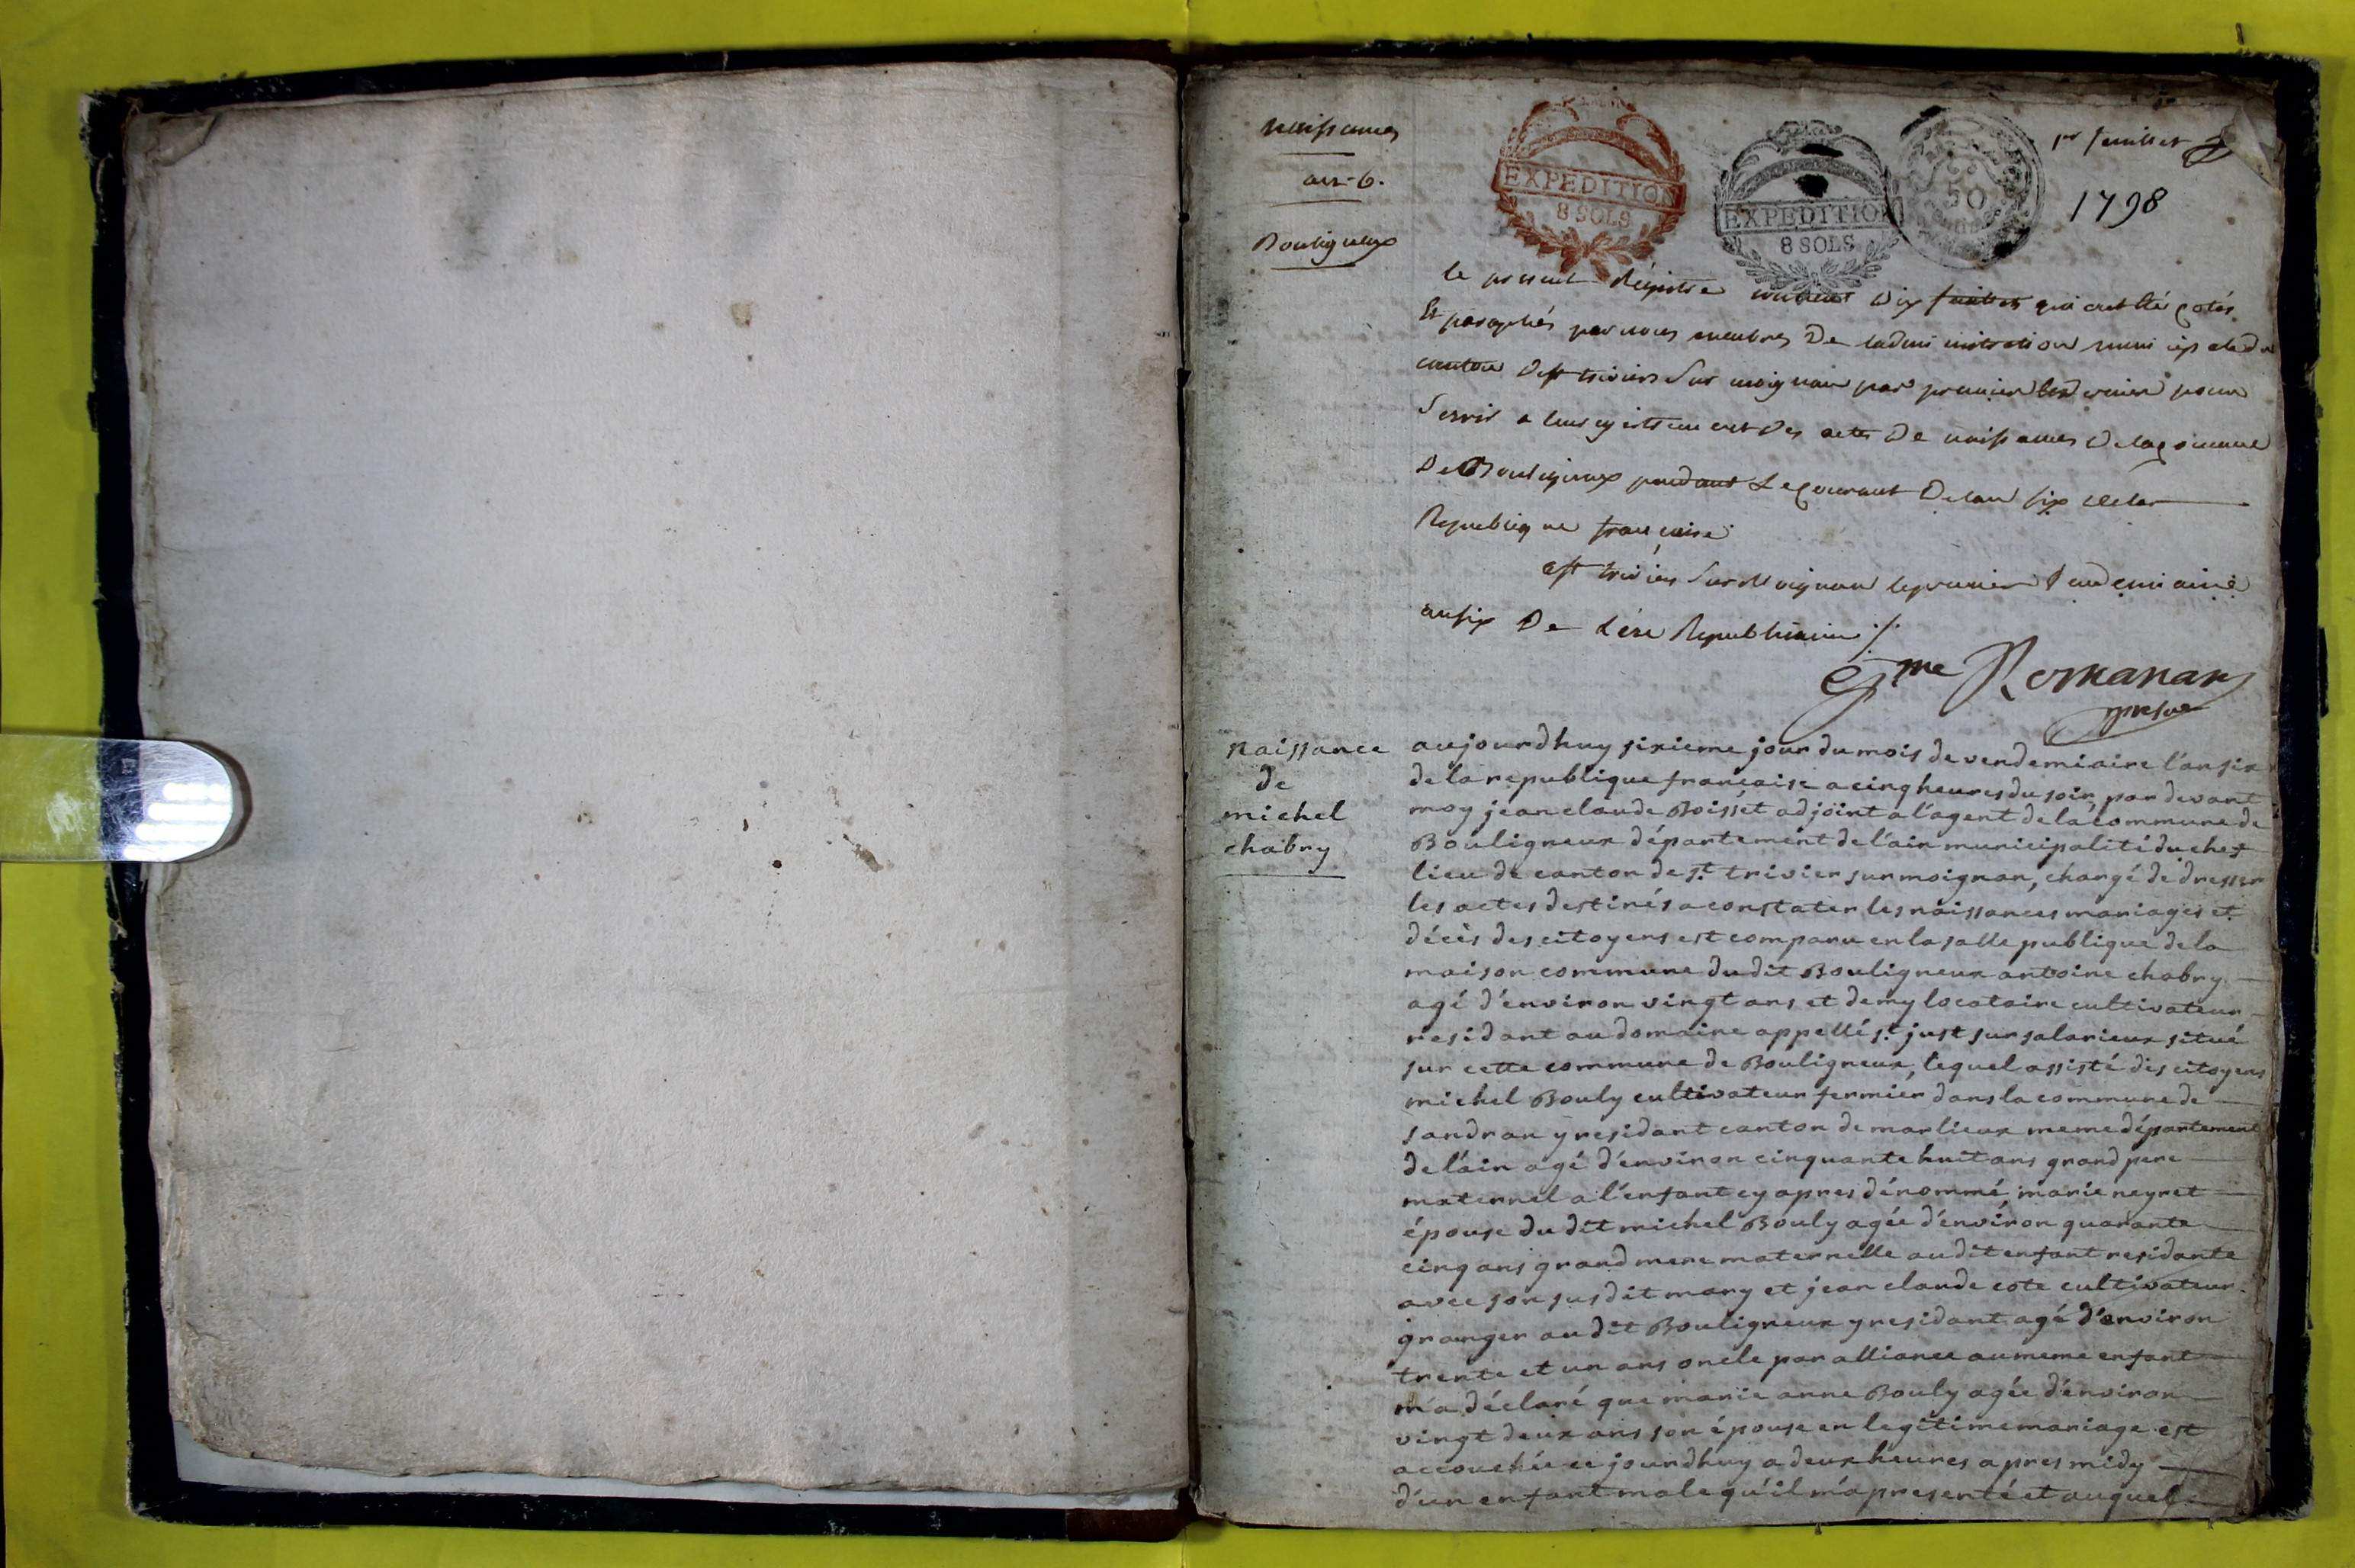 naissances
an 6.
Bouligneux
EXPEDITION
8 SOLS
EXPEDITION
8 SOLS
50
1er feuillet
1798
le present Régistre contenant dix feuillets qui ont été cotés
Et paraphés par nous membres De ladministration municipale du
canton De st trivier Sur moignan par premier et dernier pour
Servir a lenregistrement Des actes De naissances De la commune
De Bouligneux pendant Le courant De lan six de la
Republique françoise
a st trivier Sur Moignan le premier Vendemiaire
an six De L'ére Republicaine ./.
Romanan
naissance
de
michel
chabry
aujourdhuy sixieme jour du mois de vendemiaire l'an six
de la republique francaise a cinq heures du soir, par devant
moy jean claude Boisset adjoint a l'agent de la commune de
Bouligneux département de l'ain municipalité du chef
lieu de canton de st. trivier sur moignan, chargé de dresser
les actes destinés a constater les naissances mariages et
décès des citoyens est comparu en la salle publique de la
maison commune du dit Bouligneux antoine chabry
agé d'environ vingt ans et demy locataire cultivateur
residant au domaine appellé st. just sur salarieux situé
sur cette commune de Bouligneux, lequel assisté des citoyens
michel Bouly cultivateur fermier dans la commune de
sandran y residant canton de marlieux meme département
de l'ain agé d'environ cinquante huit ans grand pere
maternel a l'enfant cy apres dénommé, marie neyret
épouse du dit michel Bouly agée d'environ quarante
cinq ans grand mere maternelle au dit enfant residante
avec son susdit mary et jean claude cote cultivateur
granger au dit Bouligneux y residant agé d'environ
trente et un ans oncle par alliance au meme enfant
m'a déclaré que marie anne Bouly agée d'environ
vingt deux ans son épouse en legitime mariage est
accouchée ce jourdhuy a deux heures apres midy
d'un enfant male qu'il m'a presenté et auquel